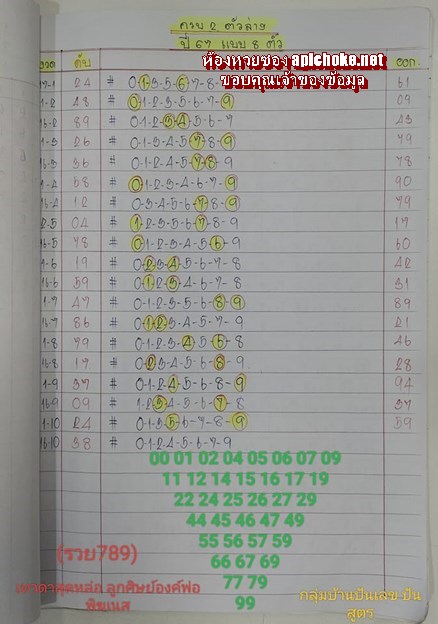 ครบ 2 ตัวล่าง
ปี 67 แบบ 8 ตัว
ห้องหวยซอง apichoke.net
ขอบคุณเจ้าของข้อมูล
งวด ดับ ออก
24 # 0-1-3-5-6-7-8- 61
1-2 48 # 0-1-2-3-5-7-9 09
16-2 89 # 0-1-2-3-4-5-6-7 43
1-3 26 # 0-1-3-4-5-7-8-9 79
16-3 36 # 0-1-2-4-5-7-8-9 78
1-4 58 # 0-1-2-3-4-6-7-9 90
16-4 12 # 0-3-4-5-6-7-8-9 79
1-5 04 # 1-2-3-5-6-7-8-9 17
16-5 78 # 0-1-2-3-4-5-6-9 60
1-6 19 # 0-2-3-4-5-6-7-8 42
16-6 59 # 0-1-2-3-4-6-7-8 31
1-7 47 # 0-1-2-3-5-6-8-9 89
16-7 86 # 0-1-2-3-4-5-7-9 21
1-8 79 # 0-1-2-3-4-5-6-8 46
16-8 17 # 0-2-3-4-5-6-8-9 28
1-9 37 # 0-1-2-4-5-6-8-9 94
16-9 09 # 1-2-3-4-5-6-7-8 37
1-10 24 # 0-1-3-5-6-7-8-9 59
16-10 38 # 0-1-2-4-5-6-7-9
00 01 02 04 05 06 07 09
11 12 14 15 16 17 19
22 24 25 26 27 29
44 45 46 47 49
55 56 57 59
66 67 69
77 79
99
(รวย789)
ลูกศิษย์องค์พ่อ
พิฆเนส
กลุ่มบ้านปันเลข ปัน
สูตร